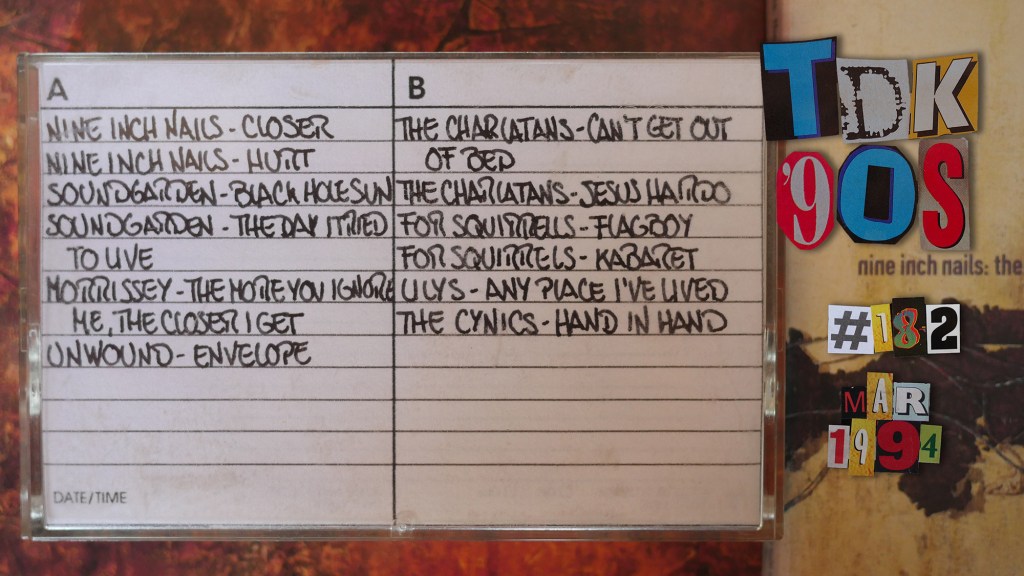 A
NINE INCH NAILS - CLOSER
NINE INCH NAILS - HURT
SOUNDGARDEN - BLACK HOLE SUN
SOUNDGARDEN - THE DAY I TRIED
TO LIVE
MORRISSEY - THE MORE YOU IGNORE
ME, THE CLOSER I GET
UNWOUND - ENVELOPE
DATE/TIME
B
THE CHARLATANS - CAN'T GET OUT
OF BED
THE CHARLATANS - JESUS HAIRDO
FOR SQUIRRELS - FLAGBOY
FOR SQUIRRELS - KABARET
LILYS - ANY PLACE I'VE LIVED
THE CYNICS - HAND IN HAND
TDK
'90S
nine inch nails: the
#18-2
MAR
1994